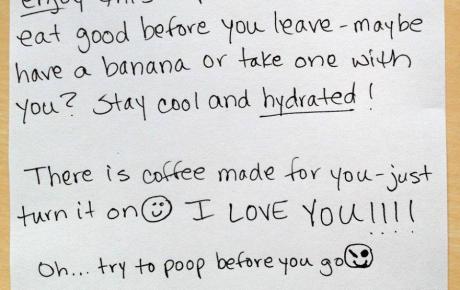 enjoy this
eat good before you leave - maybe
have a banana or take one with
you? Stay cool and hydrated!
There is coffee made for you - just
turn it on☺ I LOVE YOU!!!!
Oh... try to poop before you go